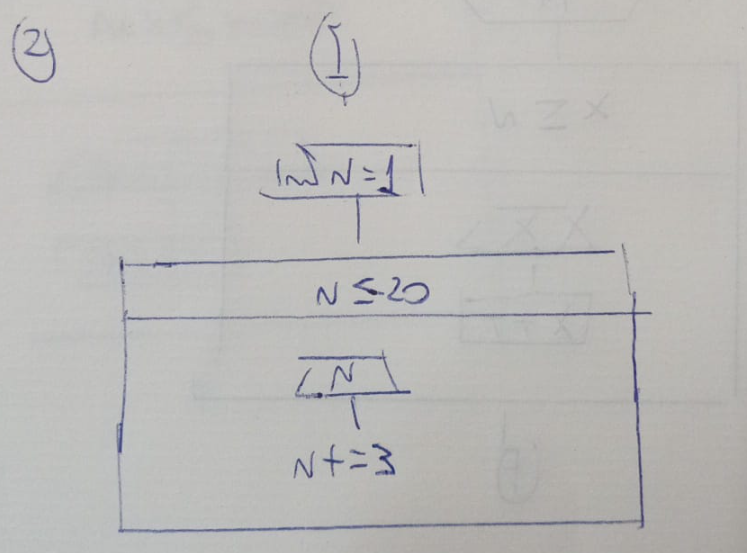 2
I
Int N=1
N ≤ 20
N
N+=3